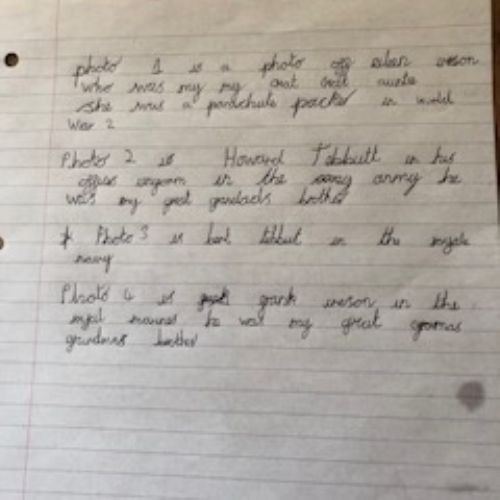 photo 1 is a photo off eileen iverson
who was my my grat grat aunte
she was a parachute packer in world
War 2
Photo 2 is Howard Tebbutt in his
offices unyorm in the army he
was my great grandads brother
* Photo 3 is tebbut in the royale
navy
Photo 4 is iverson in the
royal marines he was my great
grandmas brother